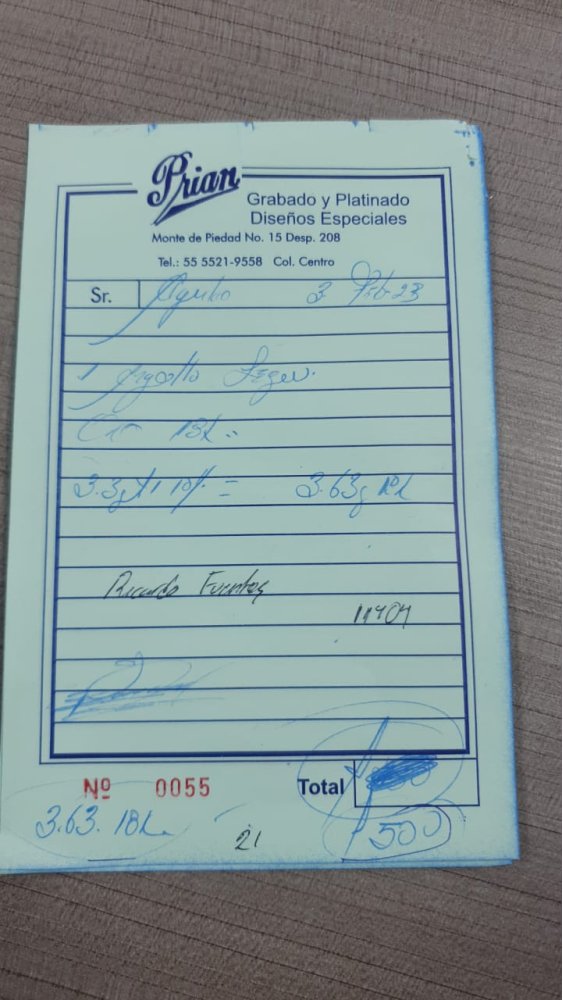 Prian
Grabado y Platinado
Diseños Especiales
Monte de Piedad No. 15 Desp. 208
Tel.: 55 5521-9558 Col. Centro
Sr. 3 Feb 23
1
18k
3.3g + 10% = 3.63g 18k
Ricardo Fuentes
11404
Nº 0055 Total
3.63. 18k. 21 500